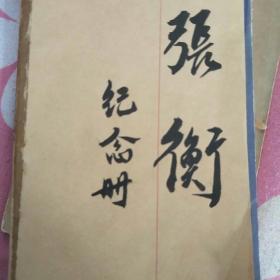 張衡
纪念册